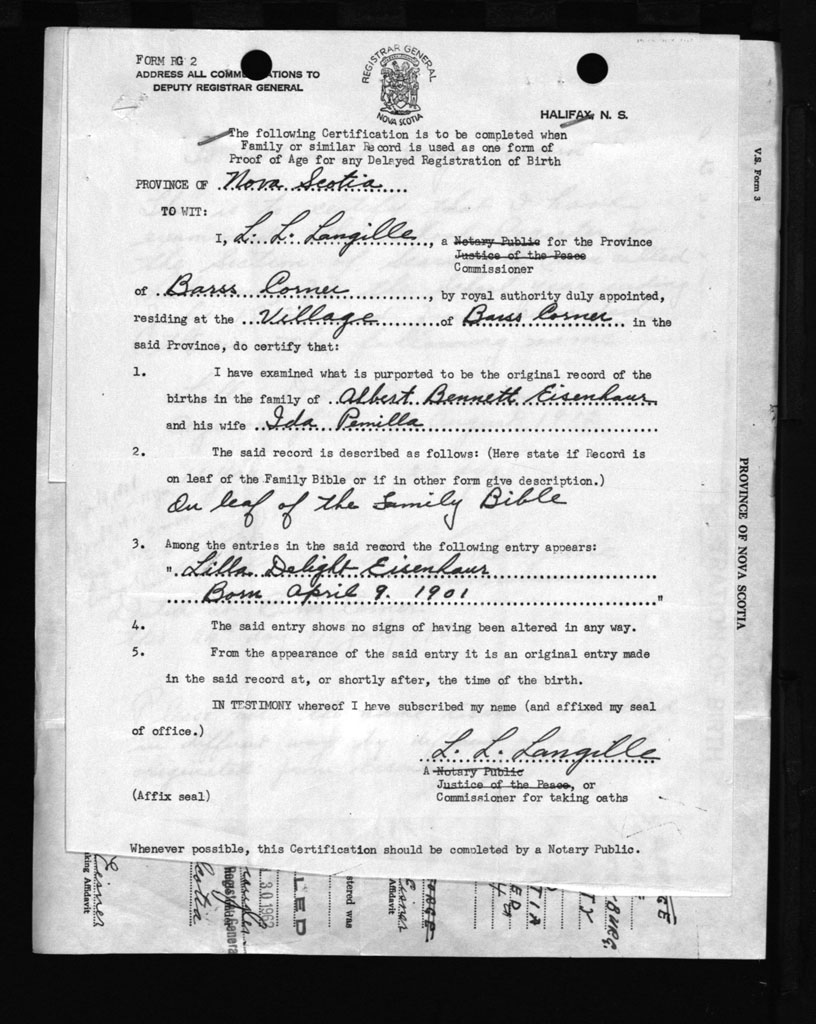 FORM RG 2
ADDRESS ALL COMM ATIONS TO
DEPUTY REGISTRAR GENERAL
REGISTRAR GENERAL
NOVA SCOTIA
HALIFAX, N. S.
The following Certification is to be completed when
Family or similar Record is used as one form of
Proof of Age for any Delayed Registration of Birth
PROVINCE OF Nova Scotia
TO WIT:
I, L. L. Langille, a Notary Public for the Province
Justice of the Peace
Commissioner
of Barss Corner, by royal authority duly appointed,
residing at the Village of Barss Corner in the
said Province, do certify that:
1. I have examined what is purported to be the original record of the
births in the family of Albert Bennett Eisenhaur
and his wife Ida Pemilla
2. The said record is described as follows: (Here state if Record is
on leaf of the Family Bible or if in other form give description.)
On leaf of the Family Bible
3. Among the entries in the said record the following entry appears:
" Lilla Delight Eisenhaur
Born April 9. 1901 "
4. The said entry shows no signs of having been altered in any way.
5. From the appearance of the said entry it is an original entry made
in the said record at, or shortly after, the time of the birth.
IN TESTIMONY whereof I have subscribed my name (and affixed my seal
of office.)
L. L. Langille
A Notary Public
Justice of the Peace, or
(Affix seal)
Commissioner for taking oaths
Whenever possible, this Certification should be completed by a Notary Public.
V.S. Form 3
PROVINCE OF NOVA SCOTIA
king Affidavit
Scotia
30 1962
LED
stered was
king Affidavit
BURG